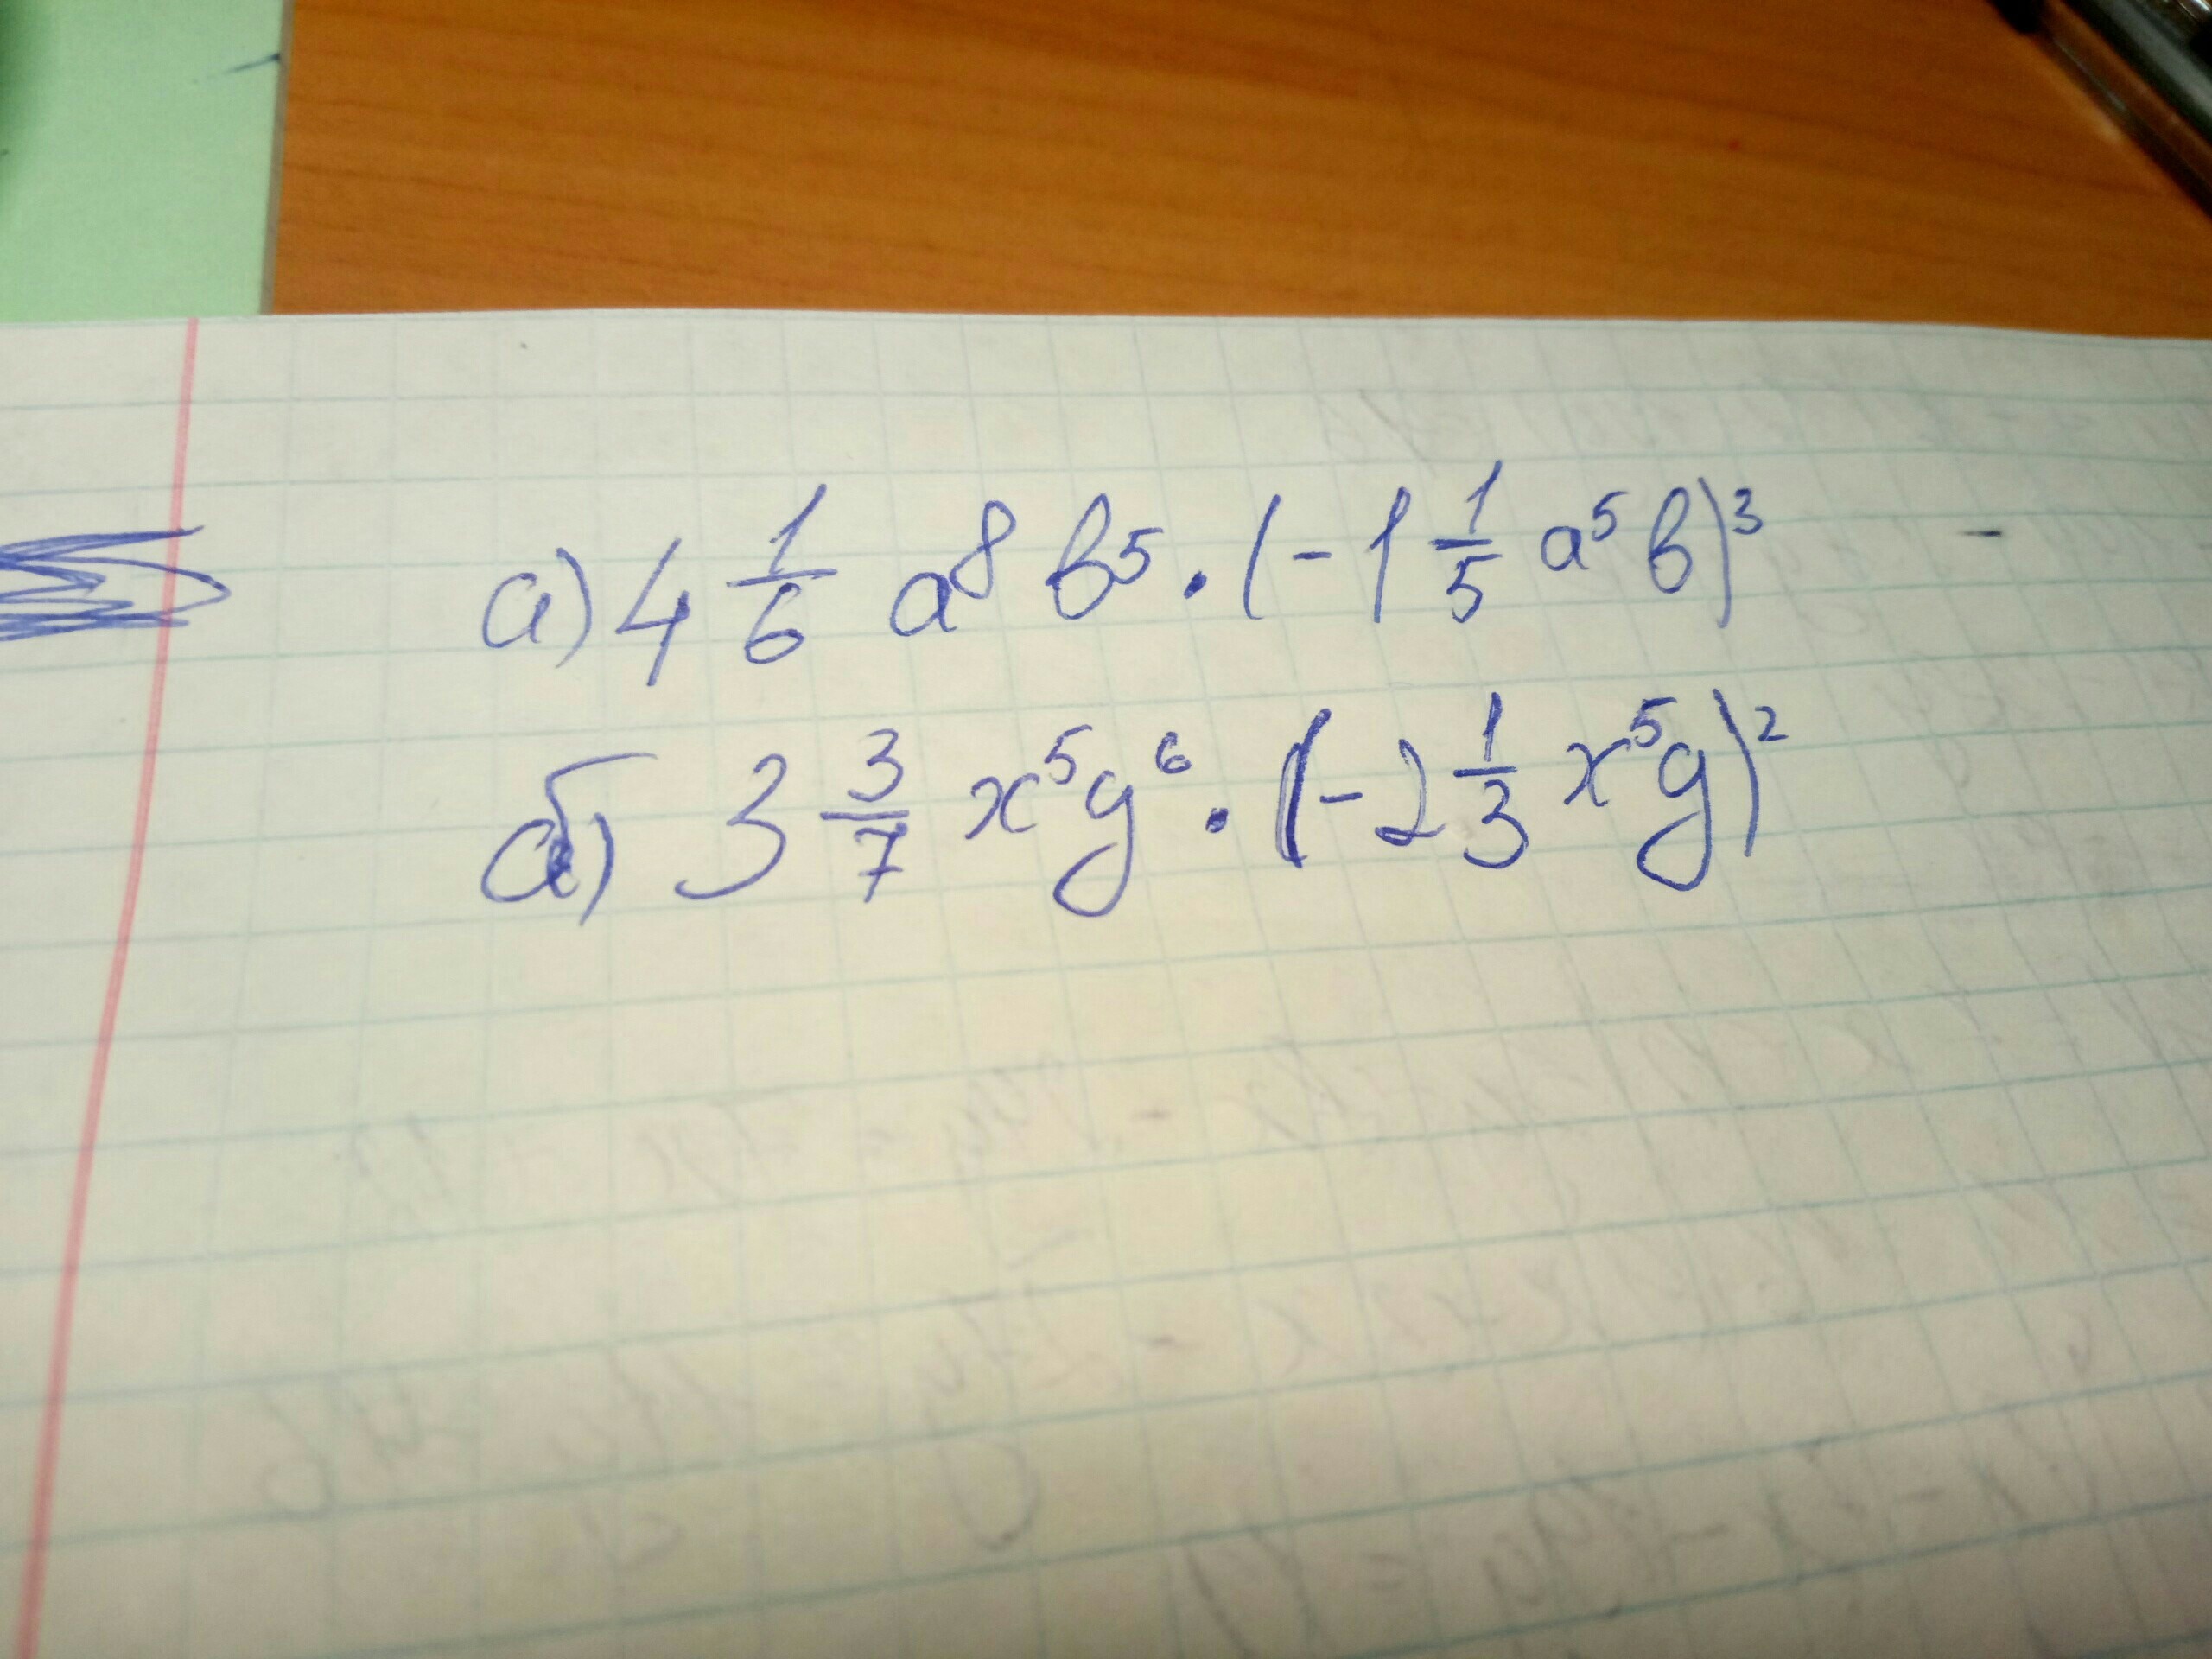 а) 4 1/6 a⁸ b⁵ · (-1 1/5 a⁵ b)³
б) 3 3/7 x⁵y⁶ · (-2 1/3 x⁵y)²